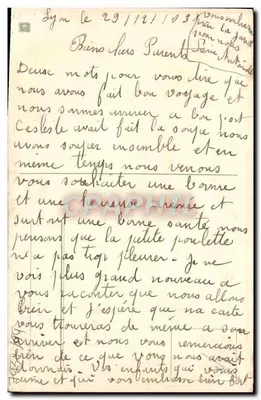 Lyon le 29/12/03
vous
pour nous
Biens chers Parents
Deux mots pour vous dire que
nous avons fait bon voyage et
nous sommes arriver a bon port
Celeste avait fait la soupe nous
avons souper ensemble et en
même temps nous venons
vous souhaiter une bonne
et une heureuse année et
surtout une bonne santé, nous
pensons que la petite poulette
n'a pas trop pleurer. Je ne
vois plus grand nouveau a
vous raconter que nous allons
bien et j'espère que ma carte
vous trouveras de même a son
arriver et nous vous remercions
bien de ce que vous nous avait
donnait. Vos enfants qui vous
aime et qui vous embrasse bien fort